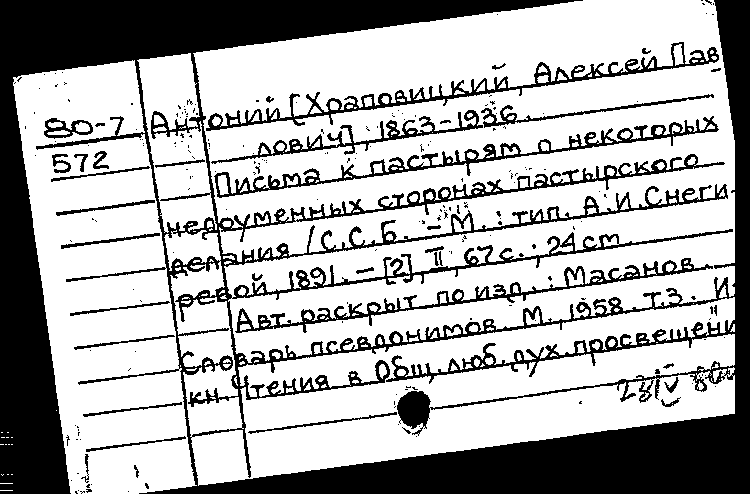 80-7
572
Антоний [Храповицкий, Алексей Пав-
лович], 1863-1936.
Письма к пастырям о некоторых
недоуменных сторонах пастырского
делания / С.С.Б. - М.: тип. А.И.Снеги-
ревой, 1891. - [2], II, 67 с.; 24 см.
Авт. раскрыт по изд.: Масанов.
Словарь псевдонимов. М., 1958. Т.3. Из
кн. Чтения в Общ. люб. дух. просвещени